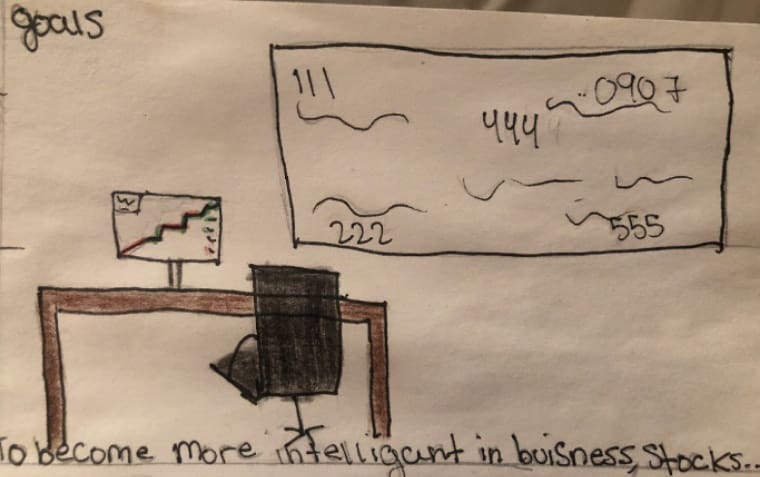 goals
111
0907
444
W
222
555
To become more intelligant in buisness, stocks..